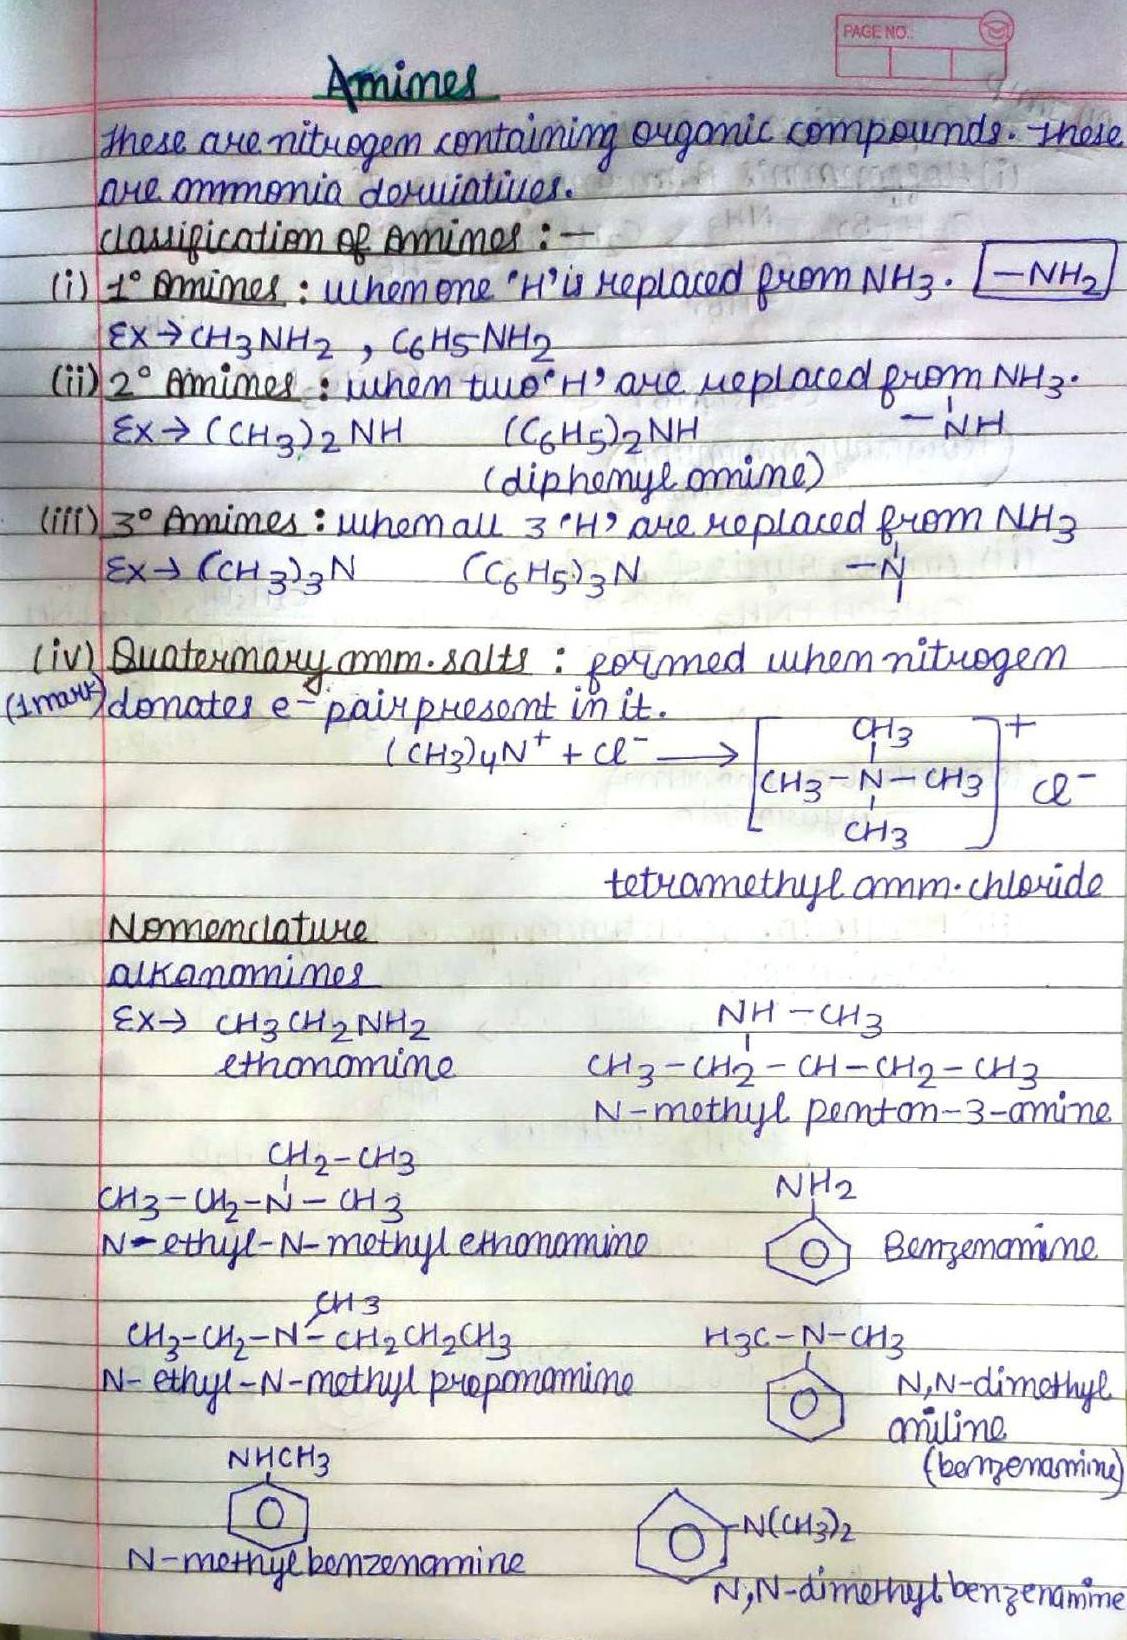 PAGE NO.:
Amines
These are nitrogen containing organic compounds. These
are ammonia derviatives.
classification of Amines :-
(i) 1° Amines : when one 'H' is replaced from NH3. -NH2
Ex→ CH3NH2 , C6H5-NH2
(ii) 2° Amines : when two 'H' are replaced from NH3.
Ex→ (CH3)2 NH (C6H5)2NH -NH
(diphenyl amine)
(iii) 3° Amines : when all 3 'H' are replaced from NH3
Ex→ (CH3)3N (C6H5)3N -N
(iv) Quaternary amm. salts : formed when nitrogen
(1 mark) donates e- pair present in it.
(CH3)4N+ + Cl- ⟶ [CH3-N-CH3]+ Cl-
CH3
CH3
tetramethyl amm. chloride
Nomenclature
alkanamines
Ex→ CH3CH2NH2 NH-CH3
ethanamine CH3-CH2-CH-CH2-CH3
N-methyl pentan-3-amine
CH2-CH3
CH3-CH2-N-CH3 NH2
N-ethyl-N-methyl ethanamine Benzenamine
CH3
CH3-CH2-N-CH2CH2CH3 H3C-N-CH3
N-ethyl-N-methyl propanamine N,N-dimethyl
aniline
(benzenamine)
NHCH3
N(CH3)2
N-methyl benzenamine
N,N-dimethyl benzenamine